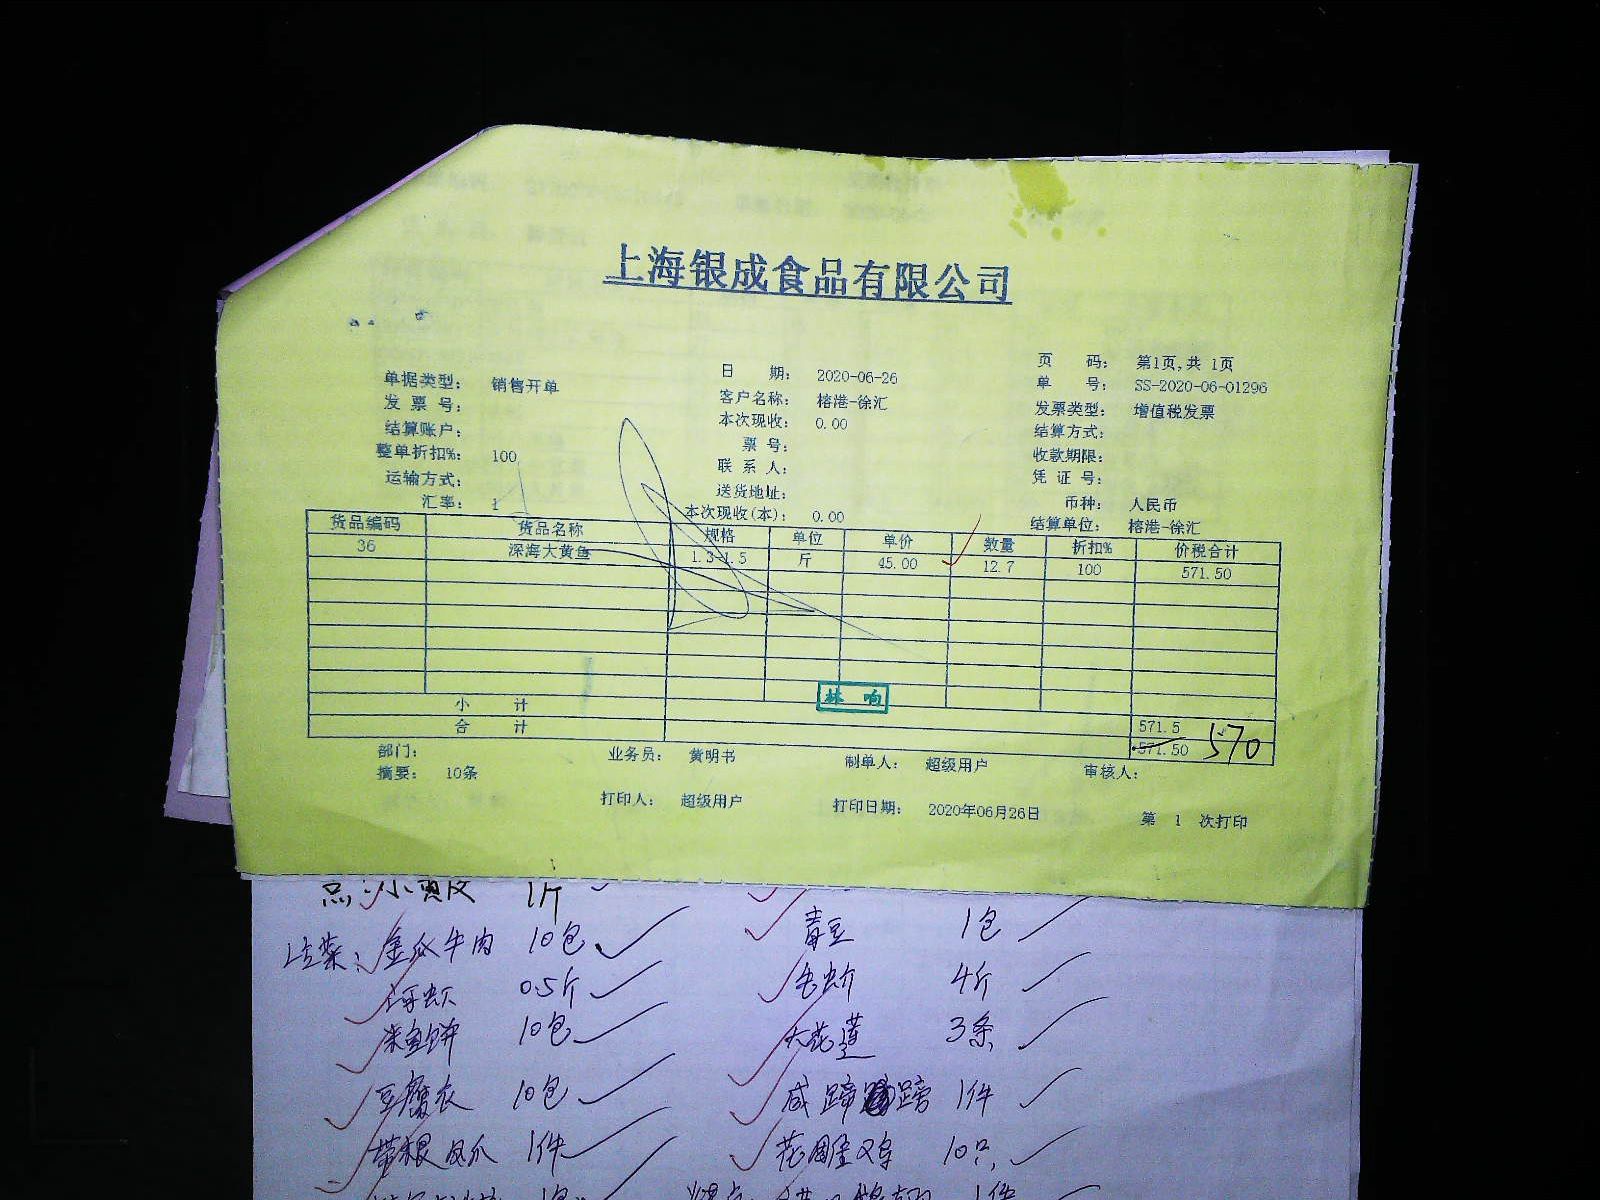 上海银成食品有限公司
单据类型: 销售开单 日 期: 2020-06-26 页 码: 第1页,共 1页
发 票 号: 客户名称: 榕港-徐汇 单 号: SS-2020-06-01296
结算账户: 本次现收: 0.00 发票类型: 增值税发票
整单折扣%: 100 票 号: 结算方式:
运输方式: 联 系 人: 收款期限:
汇率: 1 送货地址: 凭 证 号:
本次现收(本): 0.00 币种: 人民币
结算单位: 榕港-徐汇
货品编码 货品名称 规格 单位 单价 数量 折扣% 价税合计
36 深海大黄鱼 1.3-1.5 斤 45.00 12.7 100 571.50
林 响
小 计 571.5
合 计 571.50 570
部门: 业务员: 黄明书 制单人: 超级用户 审核人:
摘要: 10条
打印人: 超级用户 打印日期: 2020年06月26日 第 1 次打印
1斤
金瓜牛肉 10包 毒豆 1包
0.5斤 4斤
米鱼饼 10包 大花莲 3条
豆腐衣 10包 咸蹄 蹄 1件
带根凤爪 1件 花雕鸡 10只